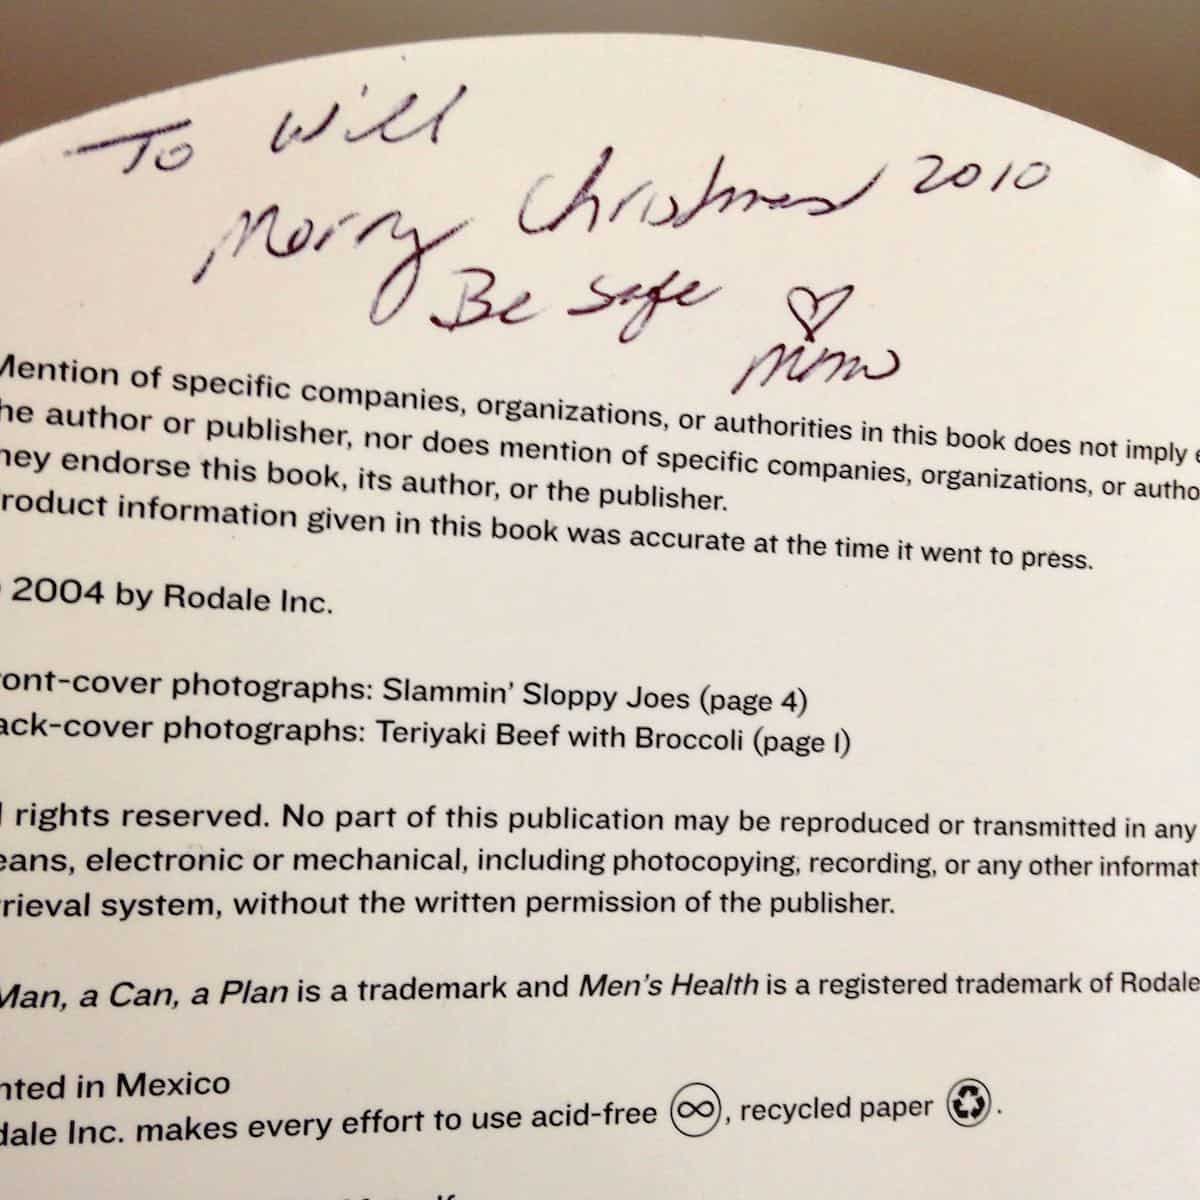 To Will
Merry Christmas 2010
Be safe ♡
mom
Mention of specific companies, organizations, or authorities in this book does not imply
he author or publisher, nor does mention of specific companies, organizations, or autho
hey endorse this book, its author, or the publisher.
roduct information given in this book was accurate at the time it went to press.
2004 by Rodale Inc.
ont-cover photographs: Slammin' Sloppy Joes (page 4)
ack-cover photographs: Teriyaki Beef with Broccoli (page 1)
l rights reserved. No part of this publication may be reproduced or transmitted in any
eans, electronic or mechanical, including photocopying, recording, or any other informat
rieval system, without the written permission of the publisher.
Man, a Can, a Plan is a trademark and Men's Health is a registered trademark of Rodale
nted in Mexico
dale Inc. makes every effort to use acid-free ∞, recycled paper ♻.